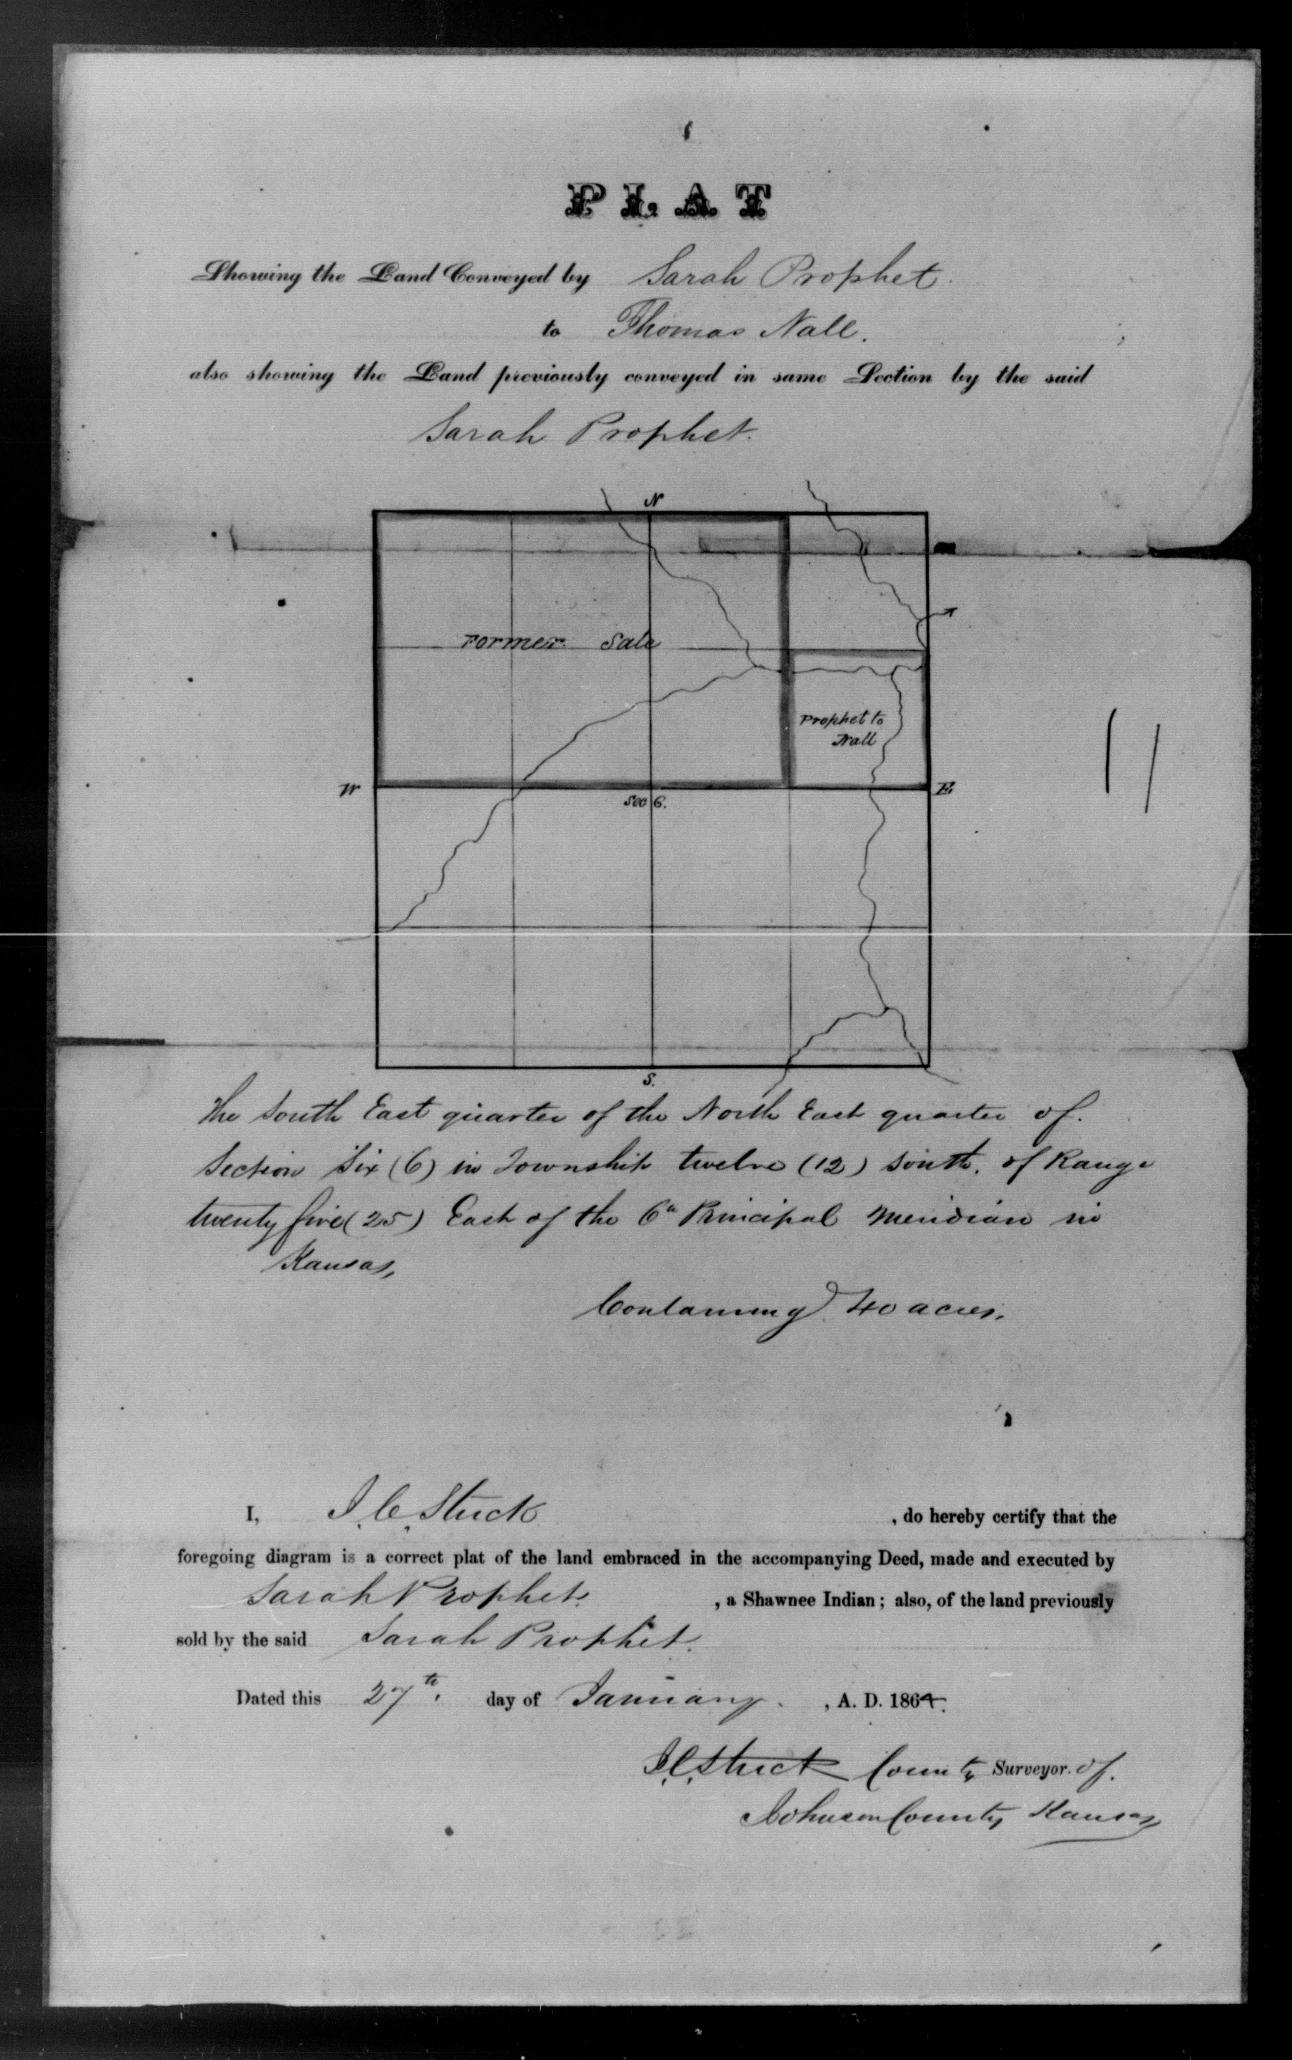 PLAT
Showing the Land Conveyed by Sarah Prophet.
to Thomas Nall.
also showing the Land previously conveyed in same Section by the said
Sarah Prophet.
N
Former Sale
Prophet to
Nall
W
E
Sec 6.
S.
The South East quarter of the North East quarter of.
Section Six (6) in Township twelve (12) South. of Range
twenty five (25) East of the 6th Principal Meridian in
Kansas,
Containing 40 acres.
I, J. C. Stuck , do hereby certify that the
foregoing diagram is a correct plat of the land embraced in the accompanying Deed, made and executed by
Sarah Prophet , a Shawnee Indian; also, of the land previously
sold by the said Sarah Prophet.
Dated this 27th. day of January. , A. D. 1864.
J. C. Stuck County Surveyor. of.
Johnson County Kansas